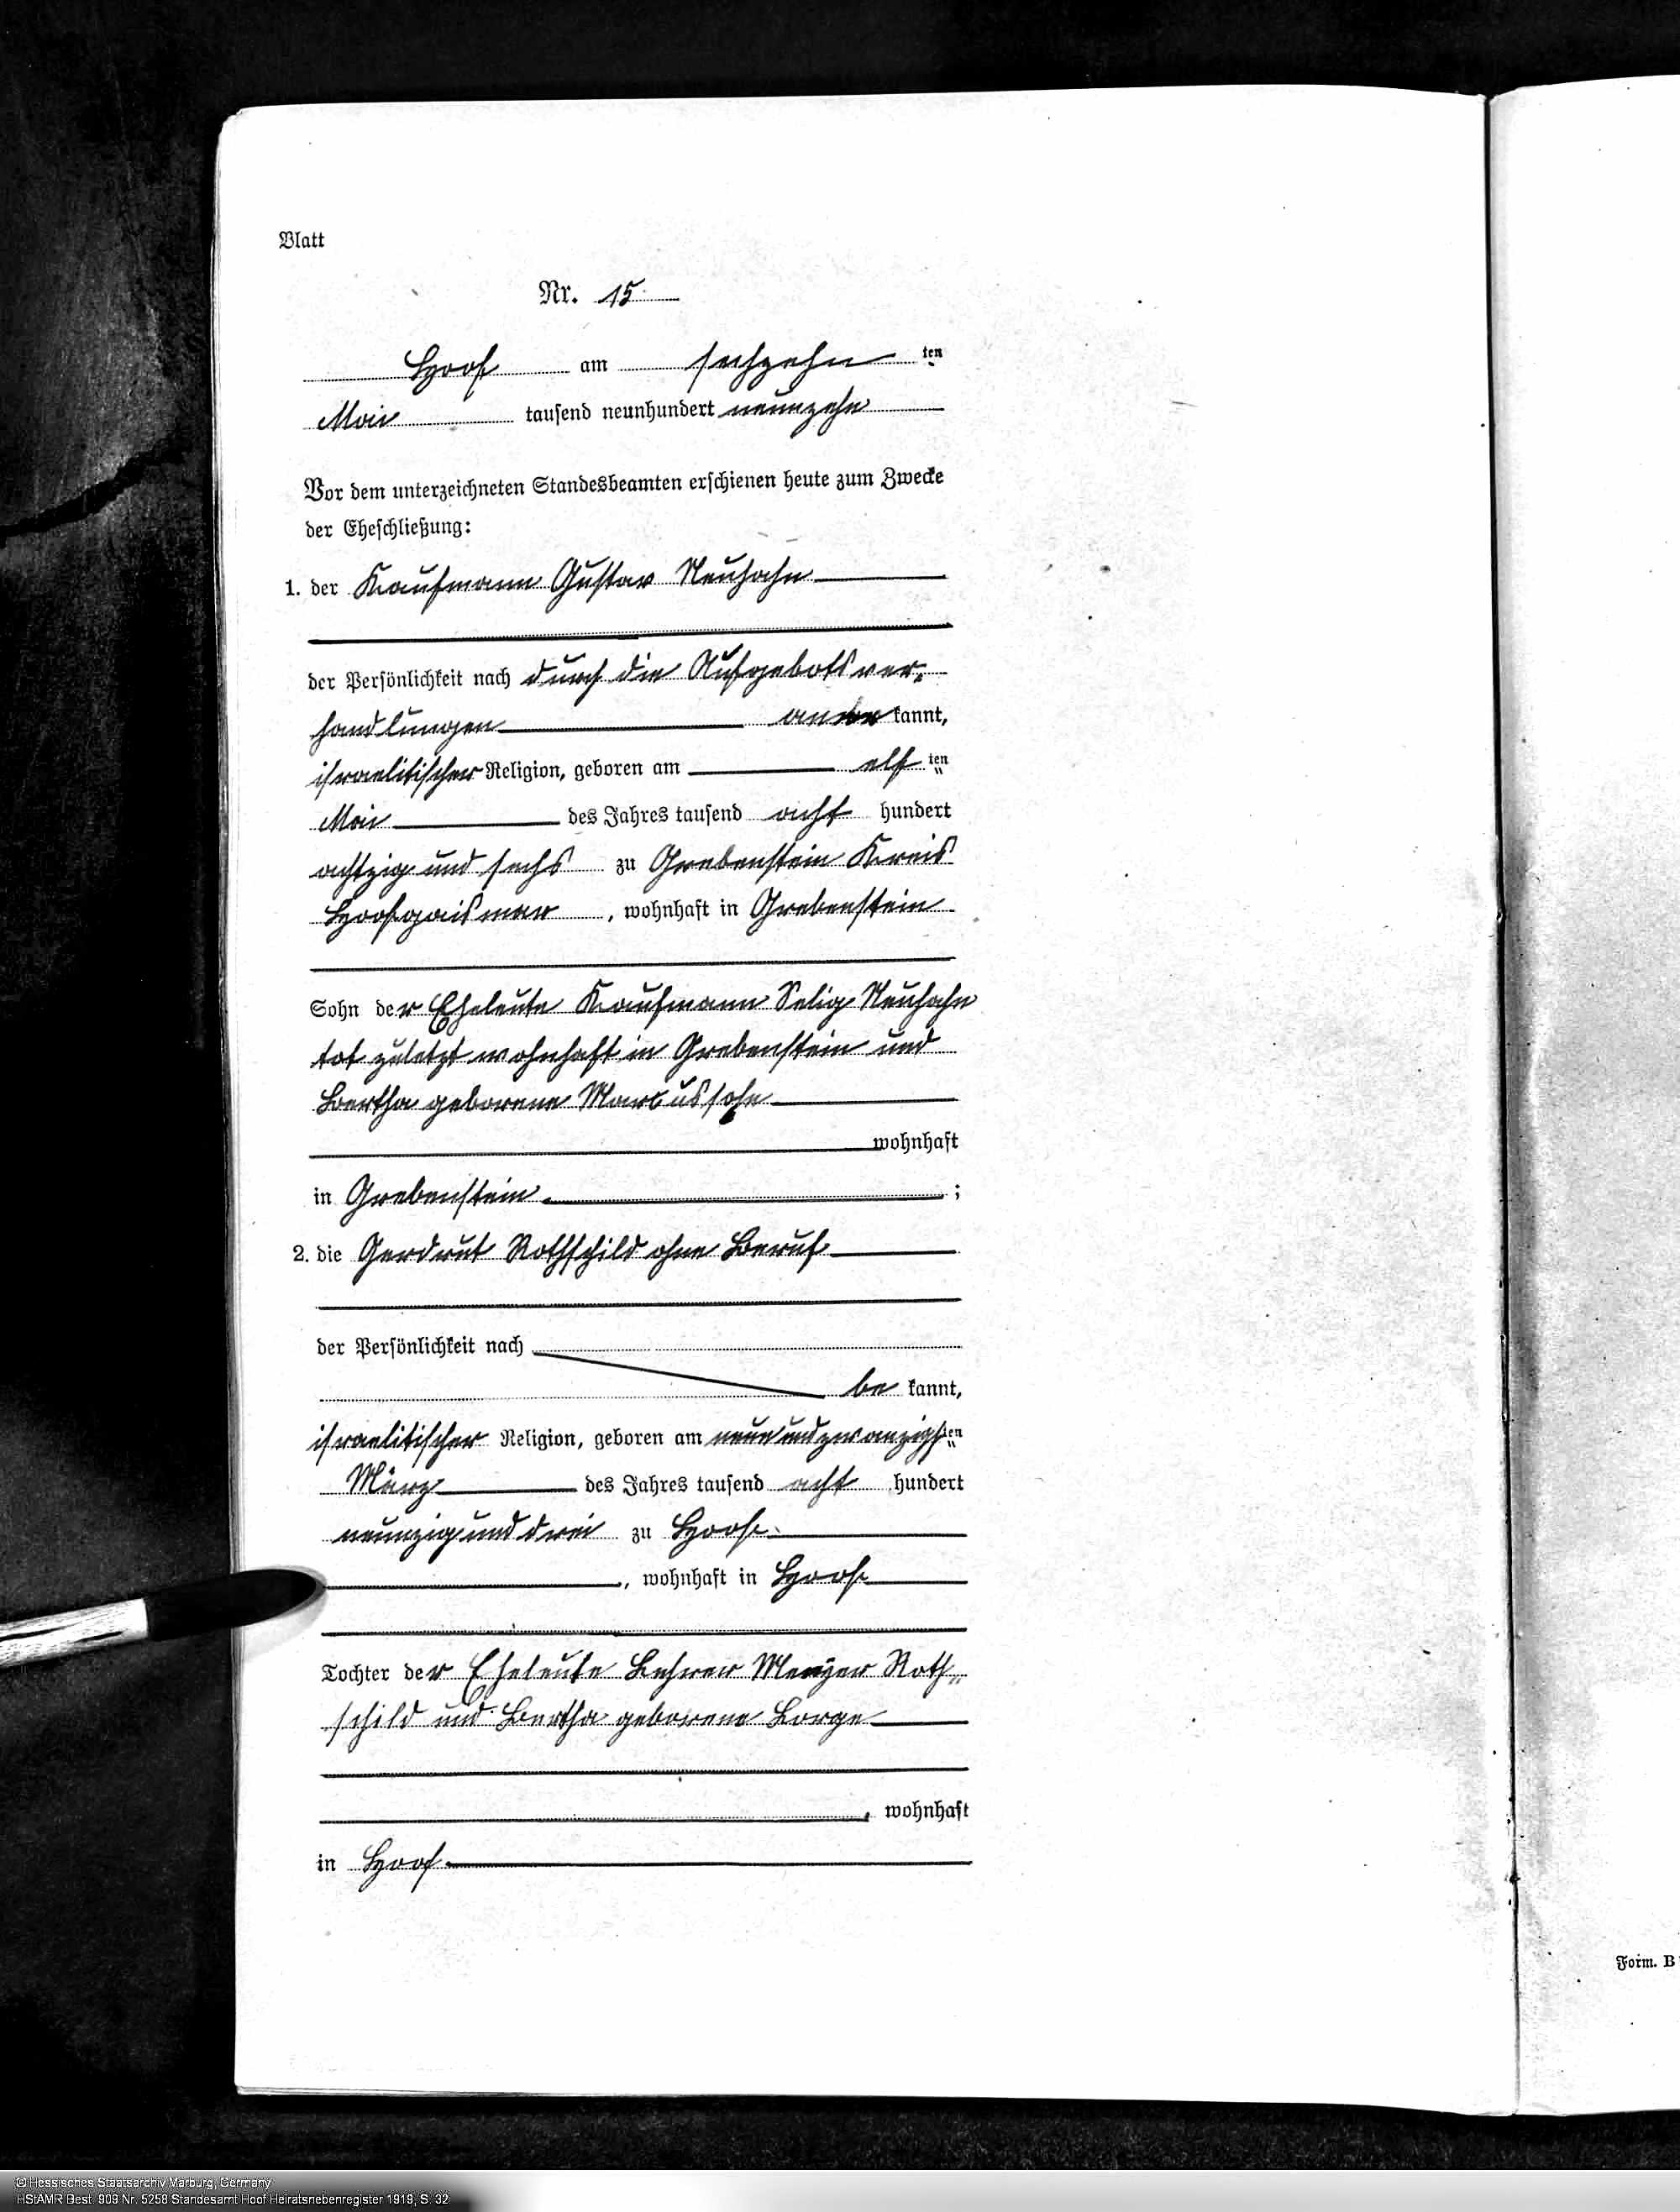 Blatt
Nr. 15
Hoof am sechzehn ten
Mai tausend neunhundert neunzehn
Vor dem unterzeichneten Standesbeamten erschienen heute zum Zwecke
der Eheschließung:
1. der Kaufmann Gustav Neuhahn
der Persönlichkeit nach durch die Aufgebotsver-
handlungen aner kannt,
israelitischer Religion, geboren am elf ten
Mai des Jahres tausend acht hundert
achtzig und sechs zu Grebenstein Kreis
Hoofgaismar, wohnhaft in Grebenstein
Sohn der Eheleute Kaufmann Selig Neuhahn
tot zuletzt wohnhaft in Grebenstein und
Bertha geborene Marcussohn
wohnhaft
in Grebenstein ;
2. die Gerdrut Rothschild ohne Beruf
der Persönlichkeit nach
be kannt,
israelitischer Religion, geboren am neunundzwanzigsten
März des Jahres tausend acht hundert
neunzig und drei zu Hoof
, wohnhaft in Hoof
Tochter der Eheleute Lehrer Meyer Roth-
schild und Bertha geborene Lorge
, wohnhaft
in Hoof
Form. B
© Hessisches Staatsarchiv Marburg, Germany
HStAMR Best. 909 Nr. 5258 Standesamt Hoof Heiratsnebenregister 1919, S. 32